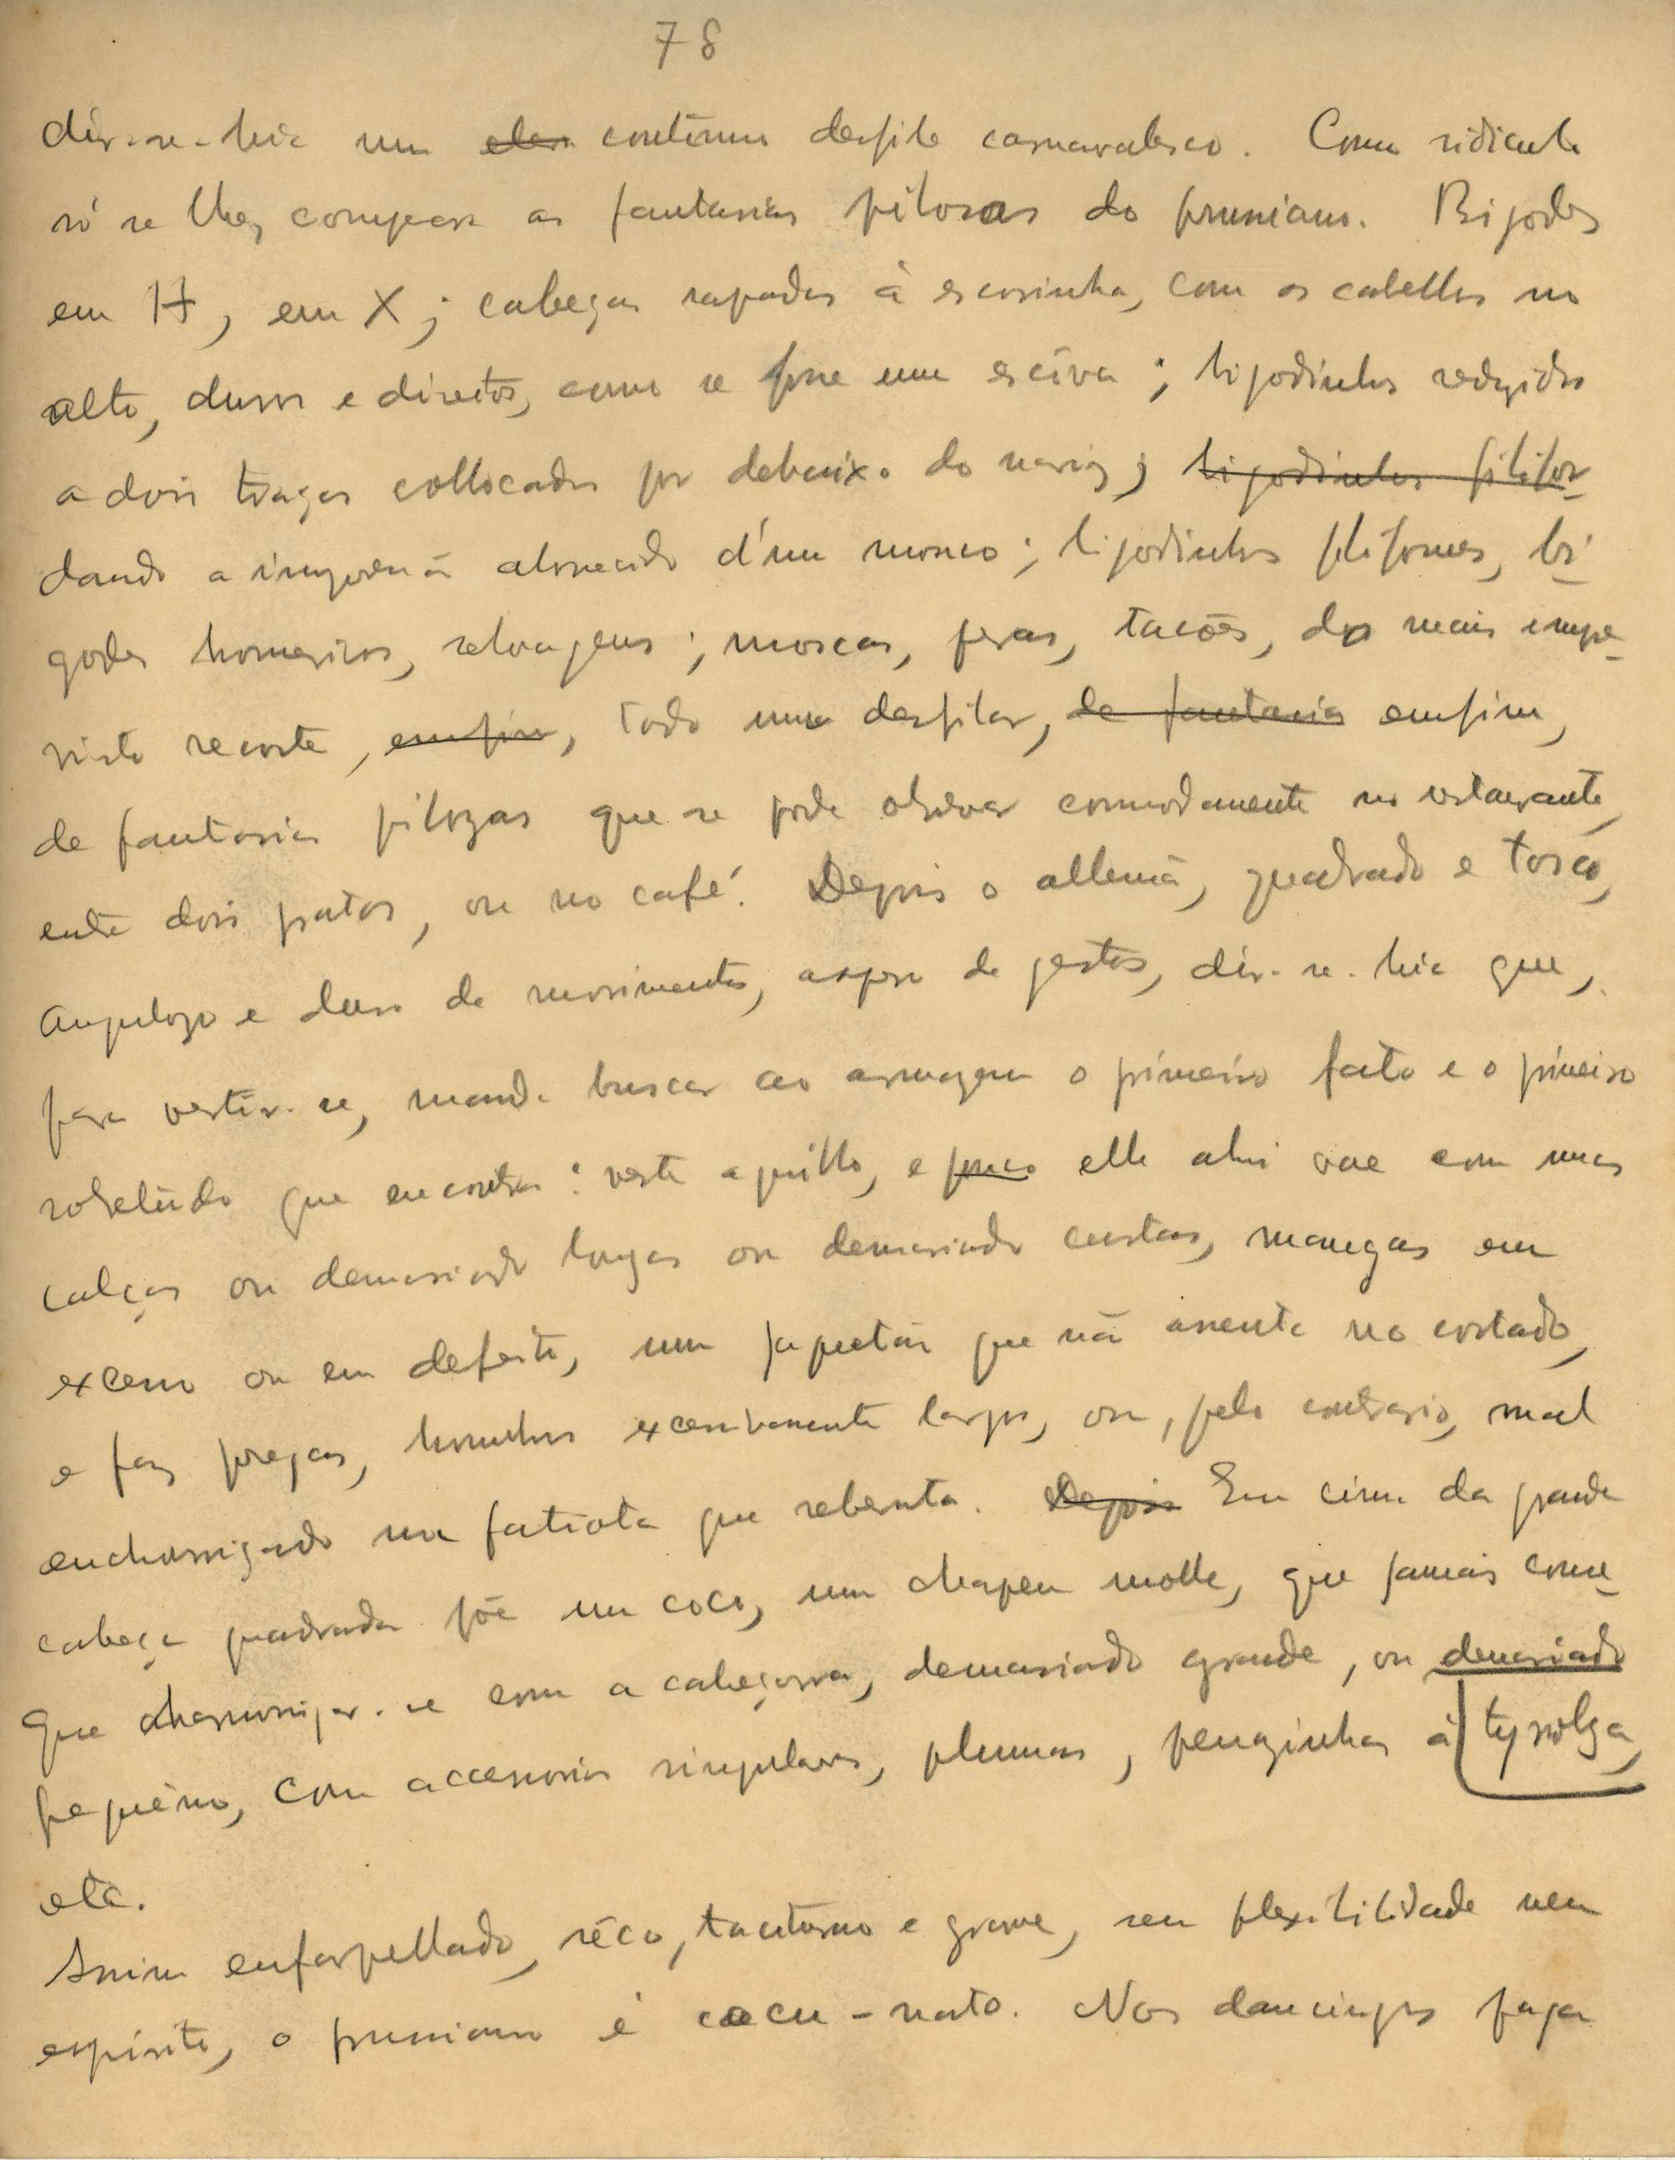 78
dir-se-hia um continuo desfile carnavalesco. Como ridiculo
só se lhes compara as fantasias pilosas do prussiano. Bigodes
em H, em X; cabeças rapadas à escovinha, com os cabellos no
alto, duros e direitos, como se fosse uma escôva; bigodinhos reduzidos
a dois traços collocados por debaixo do nariz; bigodinhos filifor-
dando a impressão aborrecida d'um monco; bigodinhos filiformes, bi-
godes homericos, selvagens; moscas, peras, tacões, do mais impre-
visto recorte, emfim, todo um desfilar, de fantasia emfim,
de fantasias pilozas que se pode observar commodamente no restaurante,
entre dois pratos, ou no café. Depois o allemã, quadrado e tosco,
anguloso e duro de movimentos, aspero de gestos, dir-se-hia que,
para vestir-se, manda buscar ao armazem o primeiro fato e o primeiro
sobretudo que encontra: veste aquillo, e elle ahi vae com umas
calças ou demasiado longas ou demasiado curtas, mangas em
excesso ou em defeito, um jaquetão que não assenta no costado,
e faz pregas, hombros excessivamente largos, ou, pelo contrario, mal
enchouriçado na fatiota que rebenta. Depois Em cima da grande
cabeça quadrada põe um coco, um chapeu molle, que jamais conse-
gue harmonizar-se com a cabeçorra, demasiado grande, ou demasiado
pequêno, com accessorios singulares, plumas, penazinhas à tyroleza,
etc.
Assim enfarpellado, sêco, taciturno e grave, sem flexibilidade nem
espirito, o prussiano é cocu-nato. Nos dancings paga